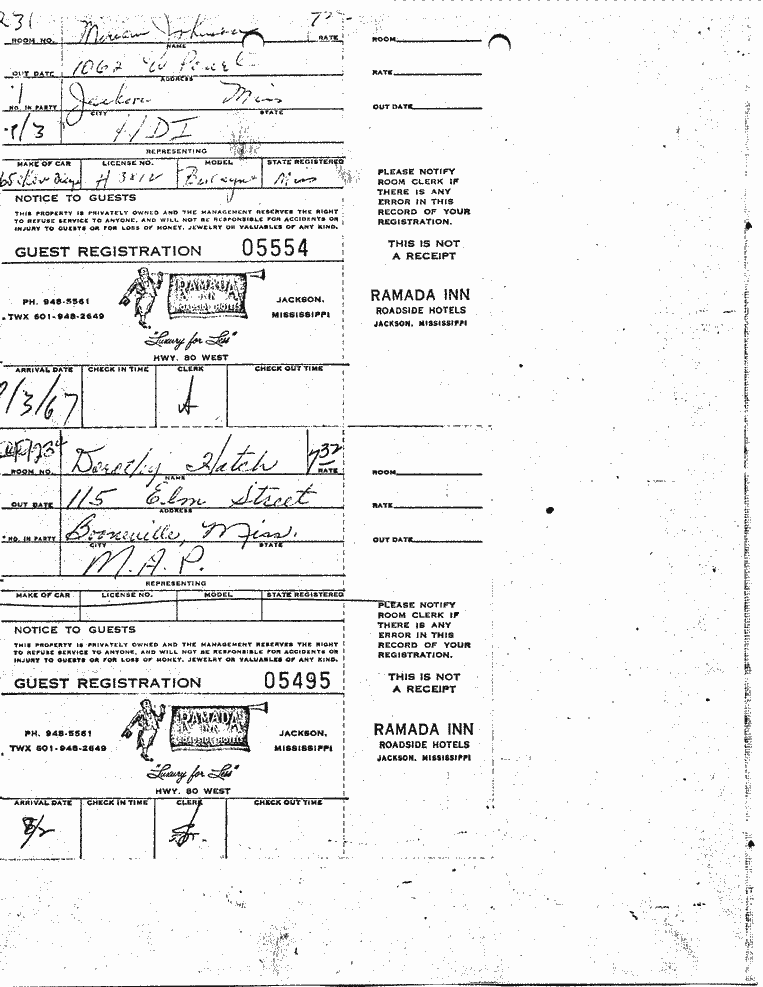 231 Miriam Johnson 7
ROOM NO. NAME RATE
1062 W
OUT DATE ADDRESS
1 Jackson Miss
NO. IN PARTY CITY STATE
REPRESENTING
MAKE OF CAR LICENSE NO. MODEL STATE REGISTERED
65 Miss
NOTICE TO GUESTS
THIS PROPERTY IS PRIVATELY OWNED AND THE MANAGEMENT RESERVES THE RIGHT
TO REFUSE SERVICE TO ANYONE, AND WILL NOT BE RESPONSIBLE FOR ACCIDENTS OR
INJURY TO GUESTS OR FOR LOSS OF MONEY, JEWELRY OR VALUABLES OF ANY KIND.
GUEST REGISTRATION 05554
RAMADA
INN
ROADSIDE HOTELS
PH. 948-5561 JACKSON,
TWX 601-948-2649 MISSISSIPPI
"Luxury for Less"
HWY. 80 WEST
ARRIVAL DATE CHECK IN TIME CLERK CHECK OUT TIME
/3/67 A
ROOM
RATE
OUT DATE
PLEASE NOTIFY
ROOM CLERK IF
THERE IS ANY
ERROR IN THIS
RECORD OF YOUR
REGISTRATION.
THIS IS NOT
A RECEIPT
RAMADA INN
ROADSIDE HOTELS
JACKSON, MISSISSIPPI
Dorothy Hatch 732
ROOM NO. NAME RATE
115 Elm Street
OUT DATE ADDRESS
Booneville, Miss.
NO. IN PARTY CITY STATE
M.A.P.
REPRESENTING
MAKE OF CAR LICENSE NO. MODEL STATE REGISTERED
NOTICE TO GUESTS
THIS PROPERTY IS PRIVATELY OWNED AND THE MANAGEMENT RESERVES THE RIGHT
TO REFUSE SERVICE TO ANYONE, AND WILL NOT BE RESPONSIBLE FOR ACCIDENTS OR
INJURY TO GUESTS OR FOR LOSS OF MONEY, JEWELRY OR VALUABLES OF ANY KIND.
GUEST REGISTRATION 05495
RAMADA
INN
ROADSIDE HOTELS
PH. 948-5561 JACKSON,
TWX 601-948-2649 MISSISSIPPI
"Luxury for Less"
HWY. 80 WEST
ARRIVAL DATE CHECK IN TIME CLERK CHECK OUT TIME
8/2
ROOM
RATE
OUT DATE
PLEASE NOTIFY
ROOM CLERK IF
THERE IS ANY
ERROR IN THIS
RECORD OF YOUR
REGISTRATION.
THIS IS NOT
A RECEIPT
RAMADA INN
ROADSIDE HOTELS
JACKSON, MISSISSIPPI